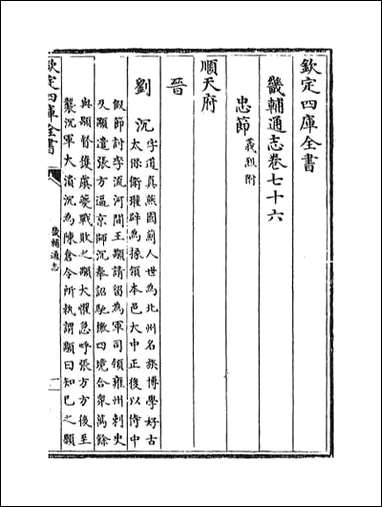 欽定四庫全書
畿輔通志卷七十六
忠節 義烈附
順天府
晉
劉沉 字道真燕國薊人世為北州名族博學好古
太保衛瓘辟為掾領本邑大中正後以侍中
假節討李流河間王顒請留為軍司領雍州刺史
及顒遣張方逼京師沉奉詔馳檄四境合衆萬餘
與顒督護虞夔戰敗之顒大懼急呼張方方後至
襲沉軍大潰沉為陳倉令所執謂顒曰知己之顧
欽定四庫全書
畿輔通志
一